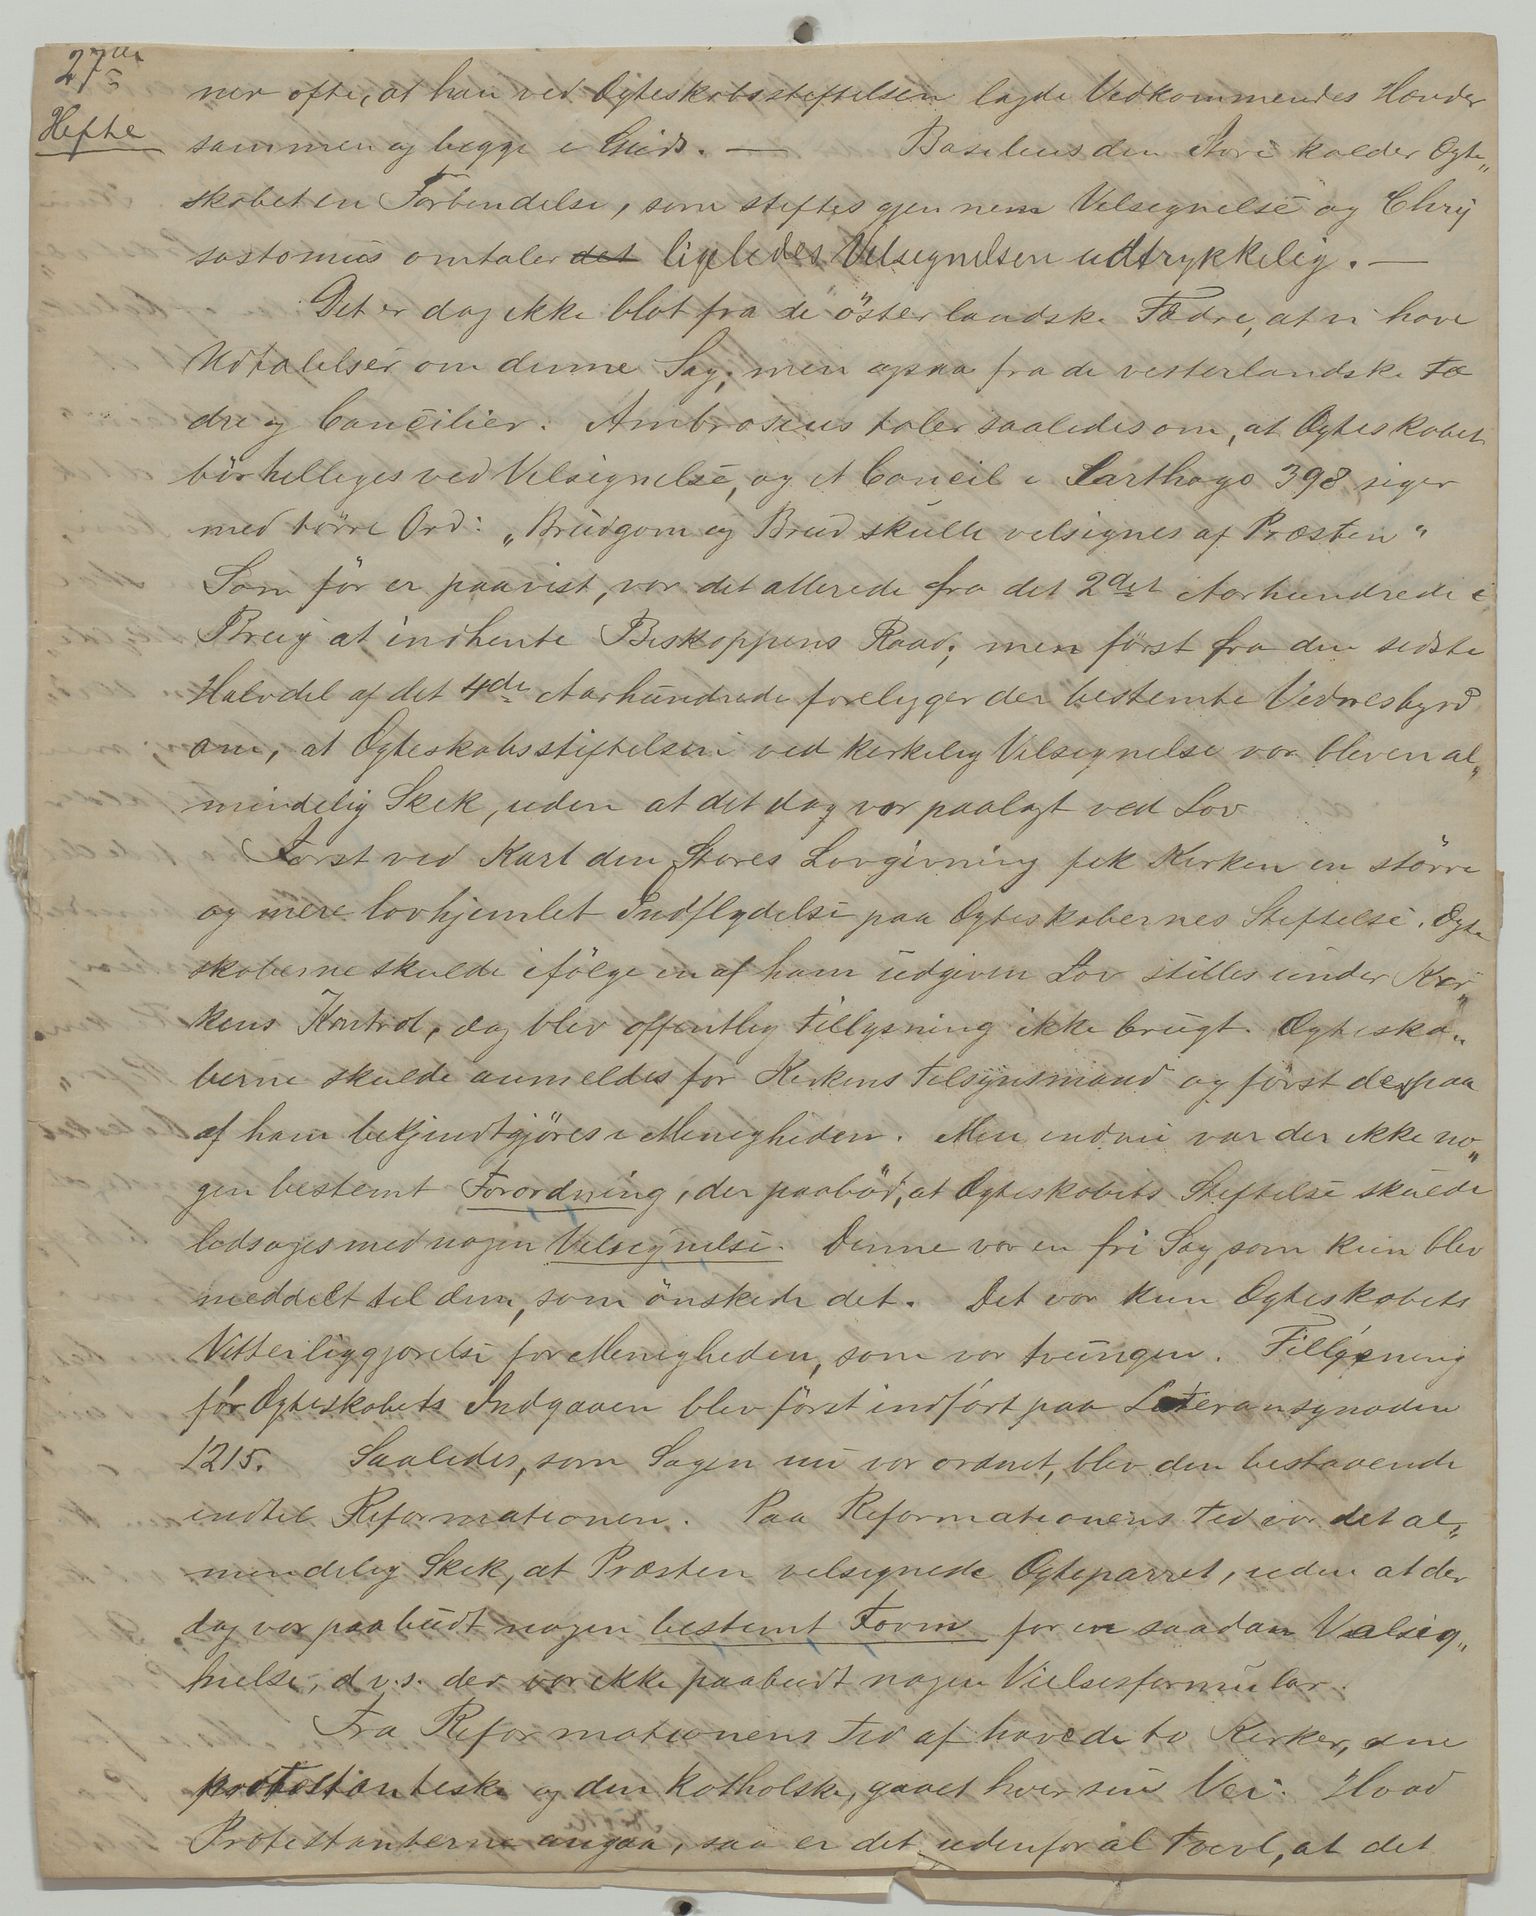 27de
Hefte
ner ofte, at han ved Ogteskabsstiftelsen lagde Vedkommendes Hænder
sammen og begge i Guds. — Basilius den Store kalder Ogte„
skabet en Forbindelse, som stiftes gjennem Velsignelse og Chry
sostomus omtaler det ligeledes Velsignelsen udtrykkelig. —
Det er dog ikke blot fra de österlandske Fædre, at vi have
Udtalelser om denne Sag, men ogsaa fra de vesterlandske Fæ
dre og Concilier. Ambrosius taler saaledes om, at Ogteskabet
bör helliges ved Velsignelse, og et Concil i Carthago 398 siger
med törre Ord: „Brudgom og Brud skulle velsignes af Præsten“
Som för er paavist, var det allerede fra det 2det Aarhundrede i
Brug at indhente Biskoppens Raad; men først fra den sidste
Halvdel af det 4de Aarhundrede foreligger der bestemte Vidnesbyrd
om, at Ogteskabsstiftelsen ved kirkelig Velsignelse var bleven al„
mindelig Skik, uden at det dog var paalagt ved Lov
Først ved Karl den Stores Lovgivning fik Kirken en större
og mere lovhjemlet Indflydelse paa Ogteskabernes Stiftelse. Ogte
skaberne skulde ifölge en af ham udgiven Lov stilles under Kir„
kens Kontrol, dog blev offentlig Tillysning ikke brugt. Ogteska„
berne skulde anmeldes for Kirkens Tilsynsmand og først derpaa
af ham bekjendtgjöres i Menigheden. Men endnu var der ikke no„
gen bestemt Forordning, der paaböd, at Ogteskabets Stiftelse skulde
ledsages med nogen Velsignelse. Denne var en fri Sag, som kun blev
meddelt til dem, som önskede det. Det var kun Ogteskabets
Vitterliggjorelse for Menigheden, som var tvungen. Tillysning
för Ogteskabets Indgaaen blev först indfört paa Lateransynoden
1215. Saaledes, som Sagen nu var ordnet, blev den bestaaende
indtil Reformationen. Paa Reformationens Tid var det al„
mindelig Skik, at Præsten velsignede Ogteparret, uden at der
dog var paabudt nogen bestemt Form for en saadan Velsig„
nelse, d.v.s. der var ikke paabudt nogen Vielsesformular.
Fra Reformationens Tid af havede to Kirker, den
protestantiske og den katholske, gaaet hver sin Vei. Hvad
Protestanterne angaa, saa er det udenfor al Tvivl, at det